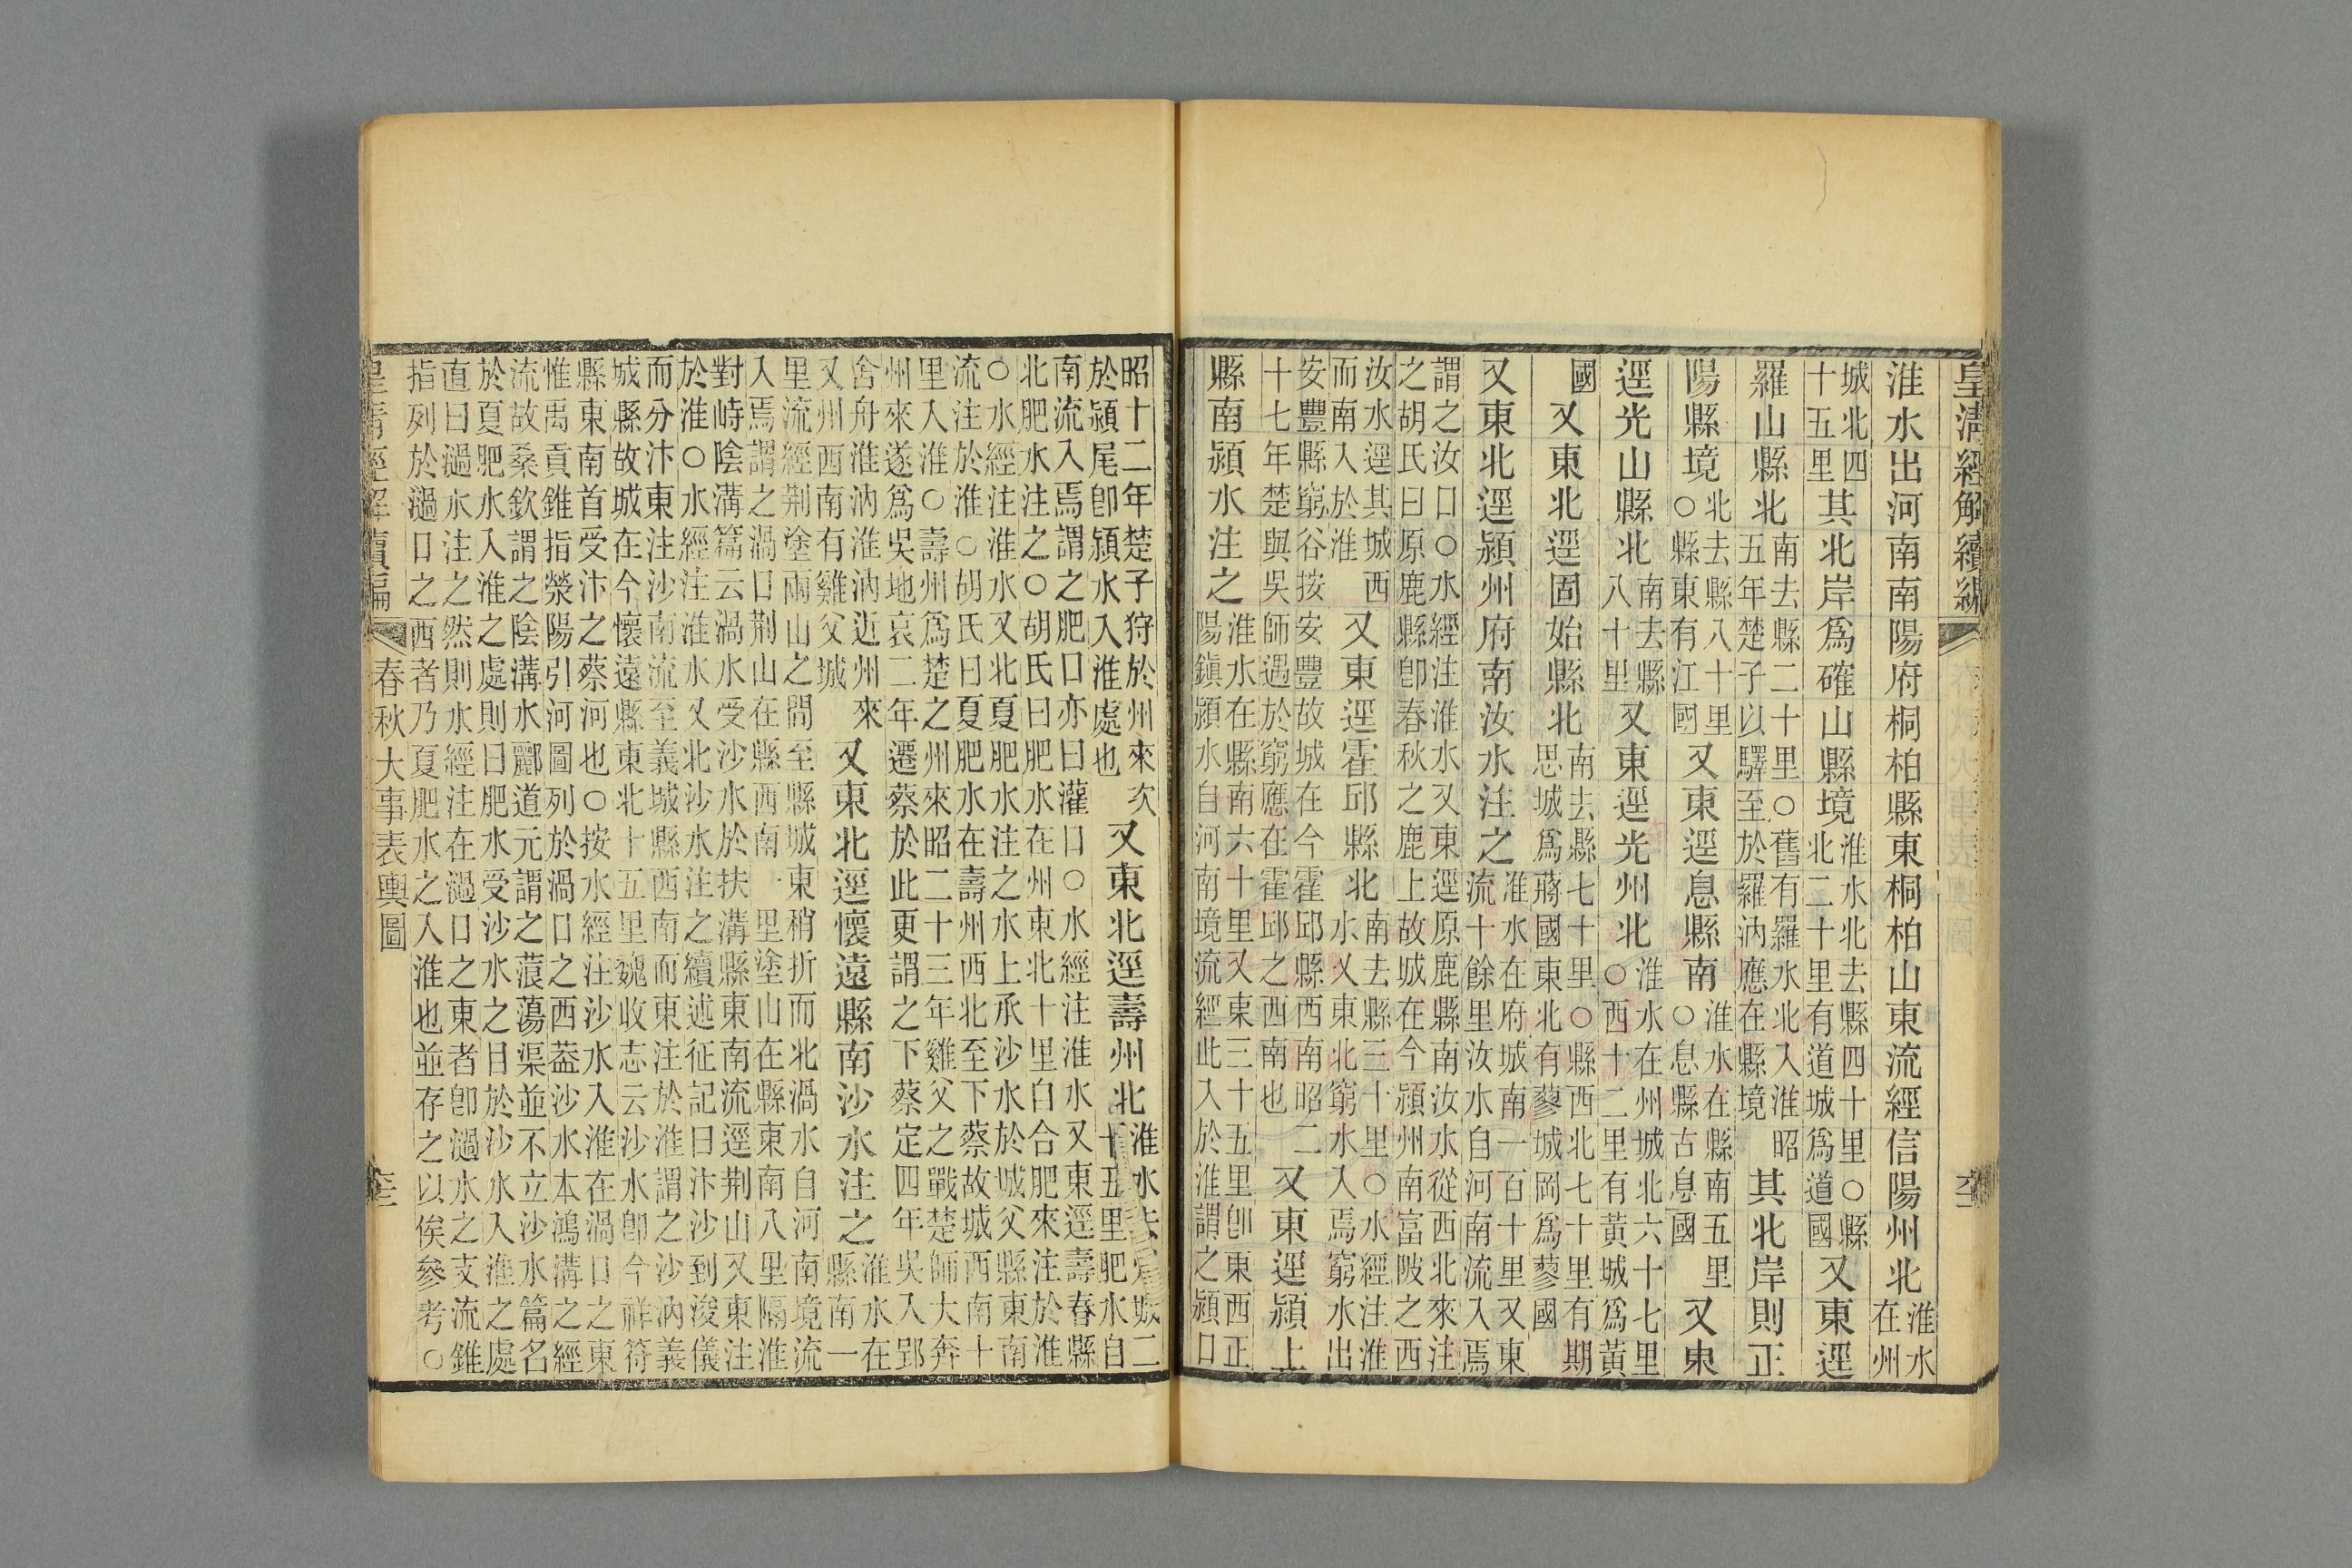 皇清經解續編
淮水出河南南陽府桐柏縣東桐柏山東流經信陽州北淮水在州
城北四十五里其北岸爲確山縣境淮水北去縣四十里○縣北二十里有道城爲道國又東逕
羅山縣北南去縣二十里○舊有羅水北入淮昭五年楚子以驛至於羅汭應在縣境其北岸則正
陽縣境北去縣八十里○縣東有江國又東逕息縣南淮水在縣南五里○息縣古息國又東
逕光山縣北南去縣八十里又東逕光州北淮水在州城北六十七里○西十二里有黃城爲黃
國又東北逕固始縣北南去縣七十里○縣西北七十里有期思城爲蔣國東北有蓼城岡爲蓼國
又東北逕潁州府南汝水注之淮水在府城南一百十里又東流十餘里汝水自河南流入焉
謂之汝口○水經注淮水又東逕原鹿縣南汝水從西北來注之胡氏曰原鹿縣卽春秋之鹿上故城在今潁州南富陂之西
汝水逕其城西而南入於淮又東逕霍邱縣北南去縣三十里○水經注淮水又東北窮水入焉窮水出
安豐縣窮谷按安豐故城在今霍邱縣西南昭二十七年楚與吳師遇於窮應在霍邱之西南也又東逕潁上
縣南潁水注之淮水在縣南六十里又東三十五里卽東西正陽鎮潁水自河南境流經此入於淮謂之潁口
昭十二年楚子狩於州來次於潁尾卽潁水入淮處也又東北逕壽州北淮水去城二十五里肥水自
南流入焉謂之肥口亦曰灌口○水經注淮水又東逕壽春縣北肥水注之○胡氏曰肥水在州東北十里自合肥來注於淮
○水經注淮水又北夏肥水注之水上承沙水於城父縣東南流注於淮○胡氏曰夏肥水在壽州西北至下蔡故城西南十
里入淮○壽州爲楚之州來昭二十三年雞父之戰楚師大奔州來遂爲吳地哀二年遷蔡於此更謂之下蔡定四年吳入郢
舍舟淮汭淮汭近州來又州西南有雞父城又東北逕懷遠縣南沙水注之淮水在縣南一
里流經荆塗兩山之間至縣城東稍折而北渦水自河南境流入焉謂之渦口荆山在縣西南一里塗山在縣東南八里隔淮
對峙陰溝篇云渦水受沙水於扶溝縣東南流逕荆山又東注於淮○水經注淮水又北沙水注之續述征記曰汴沙到浚儀
而分汴東注沙南流至義城縣西南而東注於淮謂之沙汭義城縣故城在今懷遠縣東北十五里魏收志云沙水卽今祥符
縣東南首受汴之蔡河也○按水經注沙水入淮在渦口之東惟禹貢錐指滎陽引河圖列於渦口之西葢沙水本鴻溝之經
流故桑欽謂之陰溝水酈道元謂之蒗蕩渠並不立沙水篇名於夏肥水入淮之處則曰肥水受沙水之日於沙水入淮之處
直曰濄水注之然則水經注在濄口之東者卽濄水之支流錐指列於濄口之西者乃夏肥水之入淮也並存之以俟參考○
皇清經解續編 春秋大事表輿圖